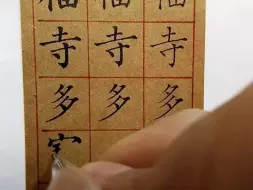 福福福
寺寺寺
多多多